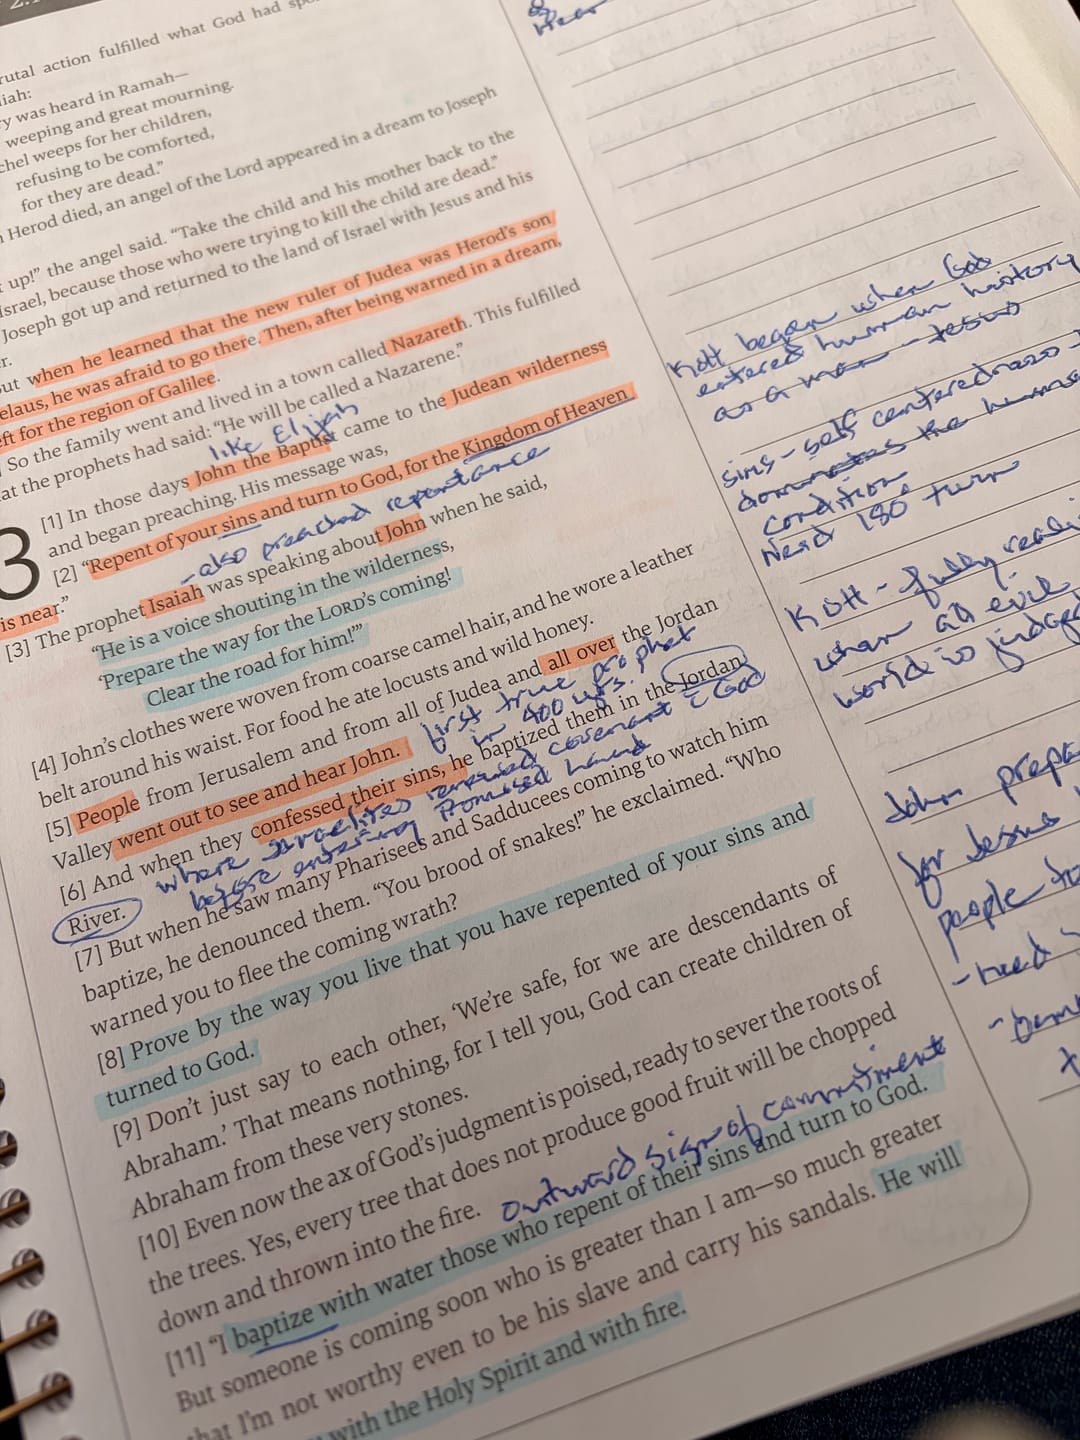 rutal action fulfilled what God had
iah:
ry was heard in Ramah—
weeping and great mourning.
chel weeps for her children,
refusing to be comforted,
for they are dead."
Herod died, an angel of the Lord appeared in a dream to Joseph
up!" the angel said. "Take the child and his mother back to the
Israel, because those who were trying to kill the child are dead."
Joseph got up and returned to the land of Israel with Jesus and his
r.
ut when he learned that the new ruler of Judea was Herod's son
elaus, he was afraid to go there. Then, after being warned in a dream,
eft for the region of Galilee.
So the family went and lived in a town called Nazareth. This fulfilled
at the prophets had said: "He will be called a Nazarene."
like Elijah
3
[1] In those days John the Baptist came to the Judean wilderness
and began preaching. His message was,
[2] "Repent of your sins and turn to God, for the Kingdom of Heaven
- also preached repentance
is near."
[3] The prophet Isaiah was speaking about John when he said,
"He is a voice shouting in the wilderness,
'Prepare the way for the LORD's coming!
Clear the road for him!'"
[4] John's clothes were woven from coarse camel hair, and he wore a leather
belt around his waist. For food he ate locusts and wild honey.
[5] People from Jerusalem and from all of Judea and all over the Jordan
Valley went out to see and hear John.
first true prophet
in 400 yrs.
[6] And when they confessed their sins, he baptized them in the Jordan
River.
where Israelites renewed covenant c̄ God
before entering Promised Land
[7] But when he saw many Pharisees and Sadducees coming to watch him
baptize, he denounced them. "You brood of snakes!" he exclaimed. "Who
warned you to flee the coming wrath?
[8] Prove by the way you live that you have repented of your sins and
turned to God.
[9] Don't just say to each other, 'We're safe, for we are descendants of
Abraham.' That means nothing, for I tell you, God can create children of
Abraham from these very stones.
[10] Even now the ax of God's judgment is poised, ready to sever the roots of
the trees. Yes, every tree that does not produce good fruit will be chopped
down and thrown into the fire.
outward sign of commitment
[11] "I baptize with water those who repent of their sins and turn to God.
But someone is coming soon who is greater than I am—so much greater
that I'm not worthy even to be his slave and carry his sandals. He will
with the Holy Spirit and with fire.
KOH began when God
entered human history
as a man - Jesus
sins - self centeredness -
dominates the human
condition
Need 180° turn
KOH - fully reali
when all evil
world is judge
John prepa
for Jesus
people to
- need